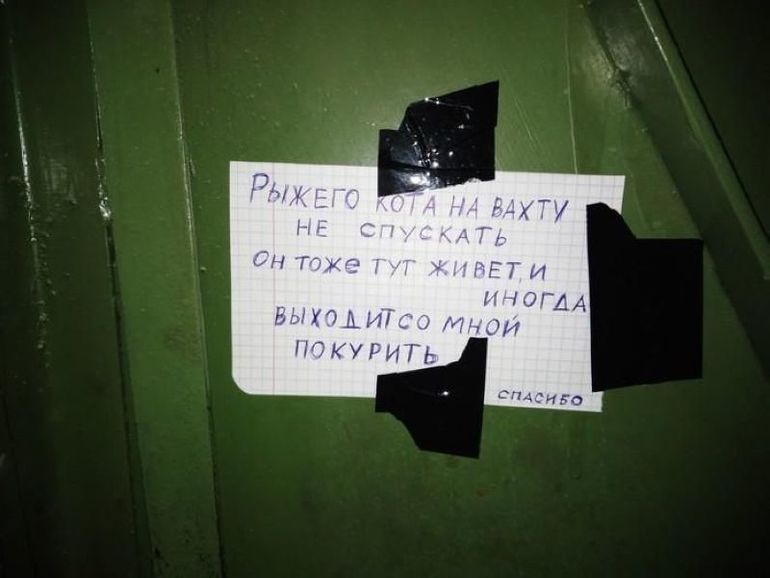 РЫЖЕГО КОТА НА ВАХТУ
НЕ СПУСКАТЬ
ОН ТОЖЕ ТУТ ЖИВЕТ, И
ИНОГДА
ВЫХОДИТ СО МНОЙ
ПОКУРИТЬ
СПАСИБО